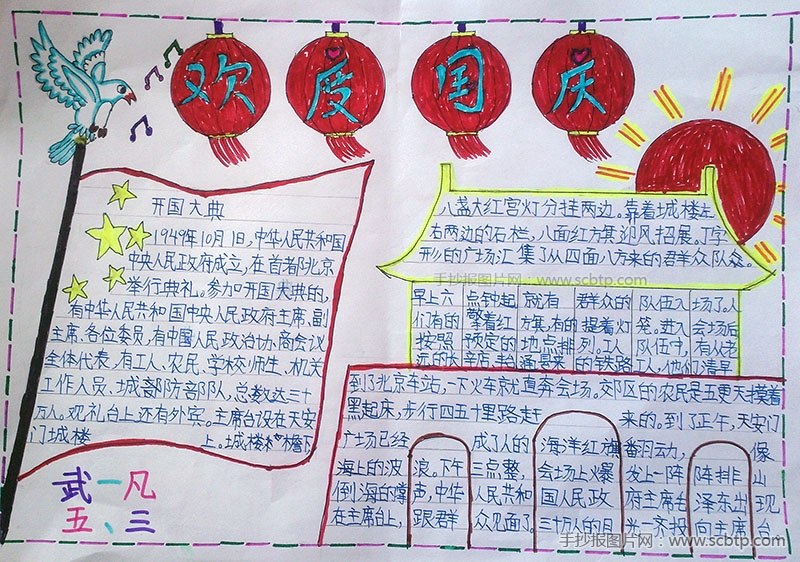 欢度国庆
开国大典
1949年10月1日，中华人民共和国
中央人民政府成立，在首都北京
举行典礼。参加开国大典的，
有中华人民共和国中央人民政府主席、副
主席、各位委员，有中国人民政治协商会议
全体代表，有工人、农民、学校师生、机关
工作人员、城部防部队，总数达三十
万人。观礼台上还有外宾。主席台设在天安
门城楼上。城楼和檐下
八盏大红宫灯分挂两边。靠着城楼左
右两边的石栏，八面红旗迎风招展。丁字
形的广场汇集了从四面八方来的群众队众。
手抄报图片网：www.scbtp.com
早上六点钟起就有群众的队伍入场了。人
们有的擎着红旗，有的提着灯笼。进入会场后
按照预定的地点排列。工人队伍中，有从老
远的长辛店、丰台、通县来的铁路工人，他们清早
到了北京车站，一下火车就直奔会场。郊区的农民是五更天摸着
黑起床，步行四五十里路赶来的。到了正午，天安门
广场已经成了人的海洋，红旗翻动，像
海上的波浪。下午三点整，会场上爆发上一阵阵排山
倒海的掌声，中华人民共和国人民政府主席台泽东出现
在主席台上，跟群众见面了。三十万人的目光一齐投向主席台
武一凡
五、三
手抄报图片网：www.scbtp.com